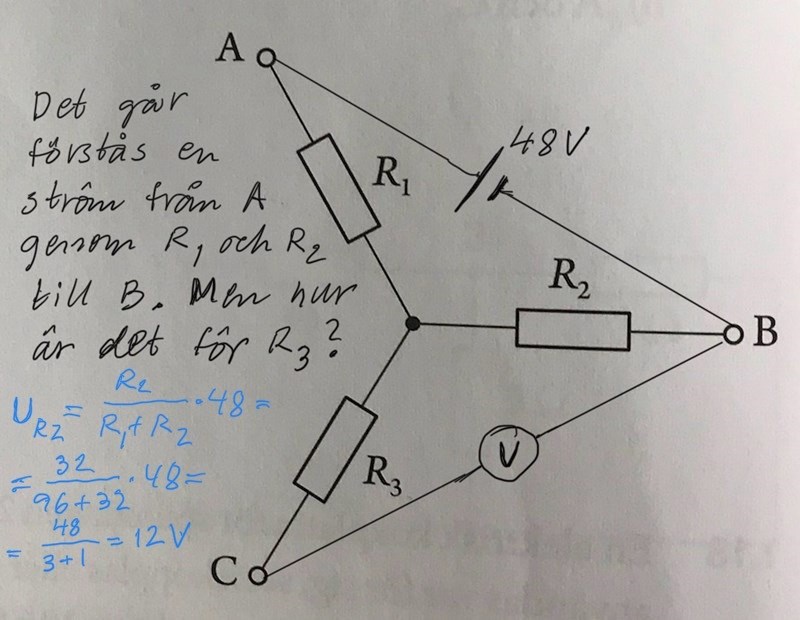 A
48V
Det går
förstås en
ström från A
genom R₁ och R₂
till B. Men hur
är det för R₃?
R₁
R₂
B
U_R2 = R₂ / (R₁+R₂) · 48 =
= 32 / (96+32) · 48 =
= 48 / (3+1) = 12 V
V
R₃
C